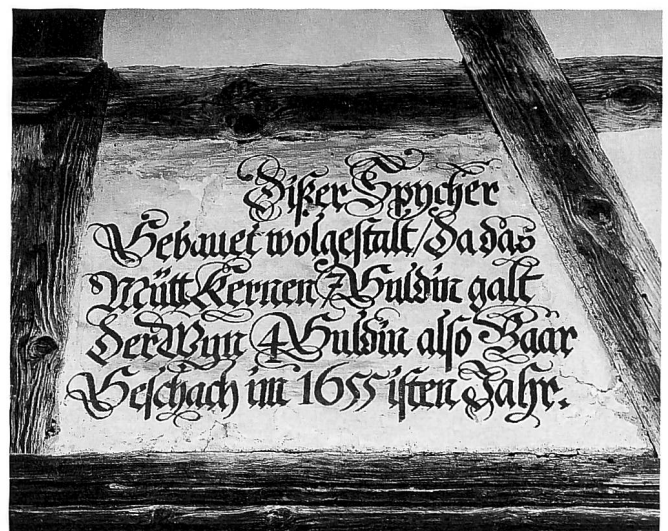 Dißer Spycher
Gebauet wolgestalt / da das
Mütt Kernen 7 Guldin galt
der Wyn 4 Guldin also Baar
Geschach im 1655 isten Jahr.